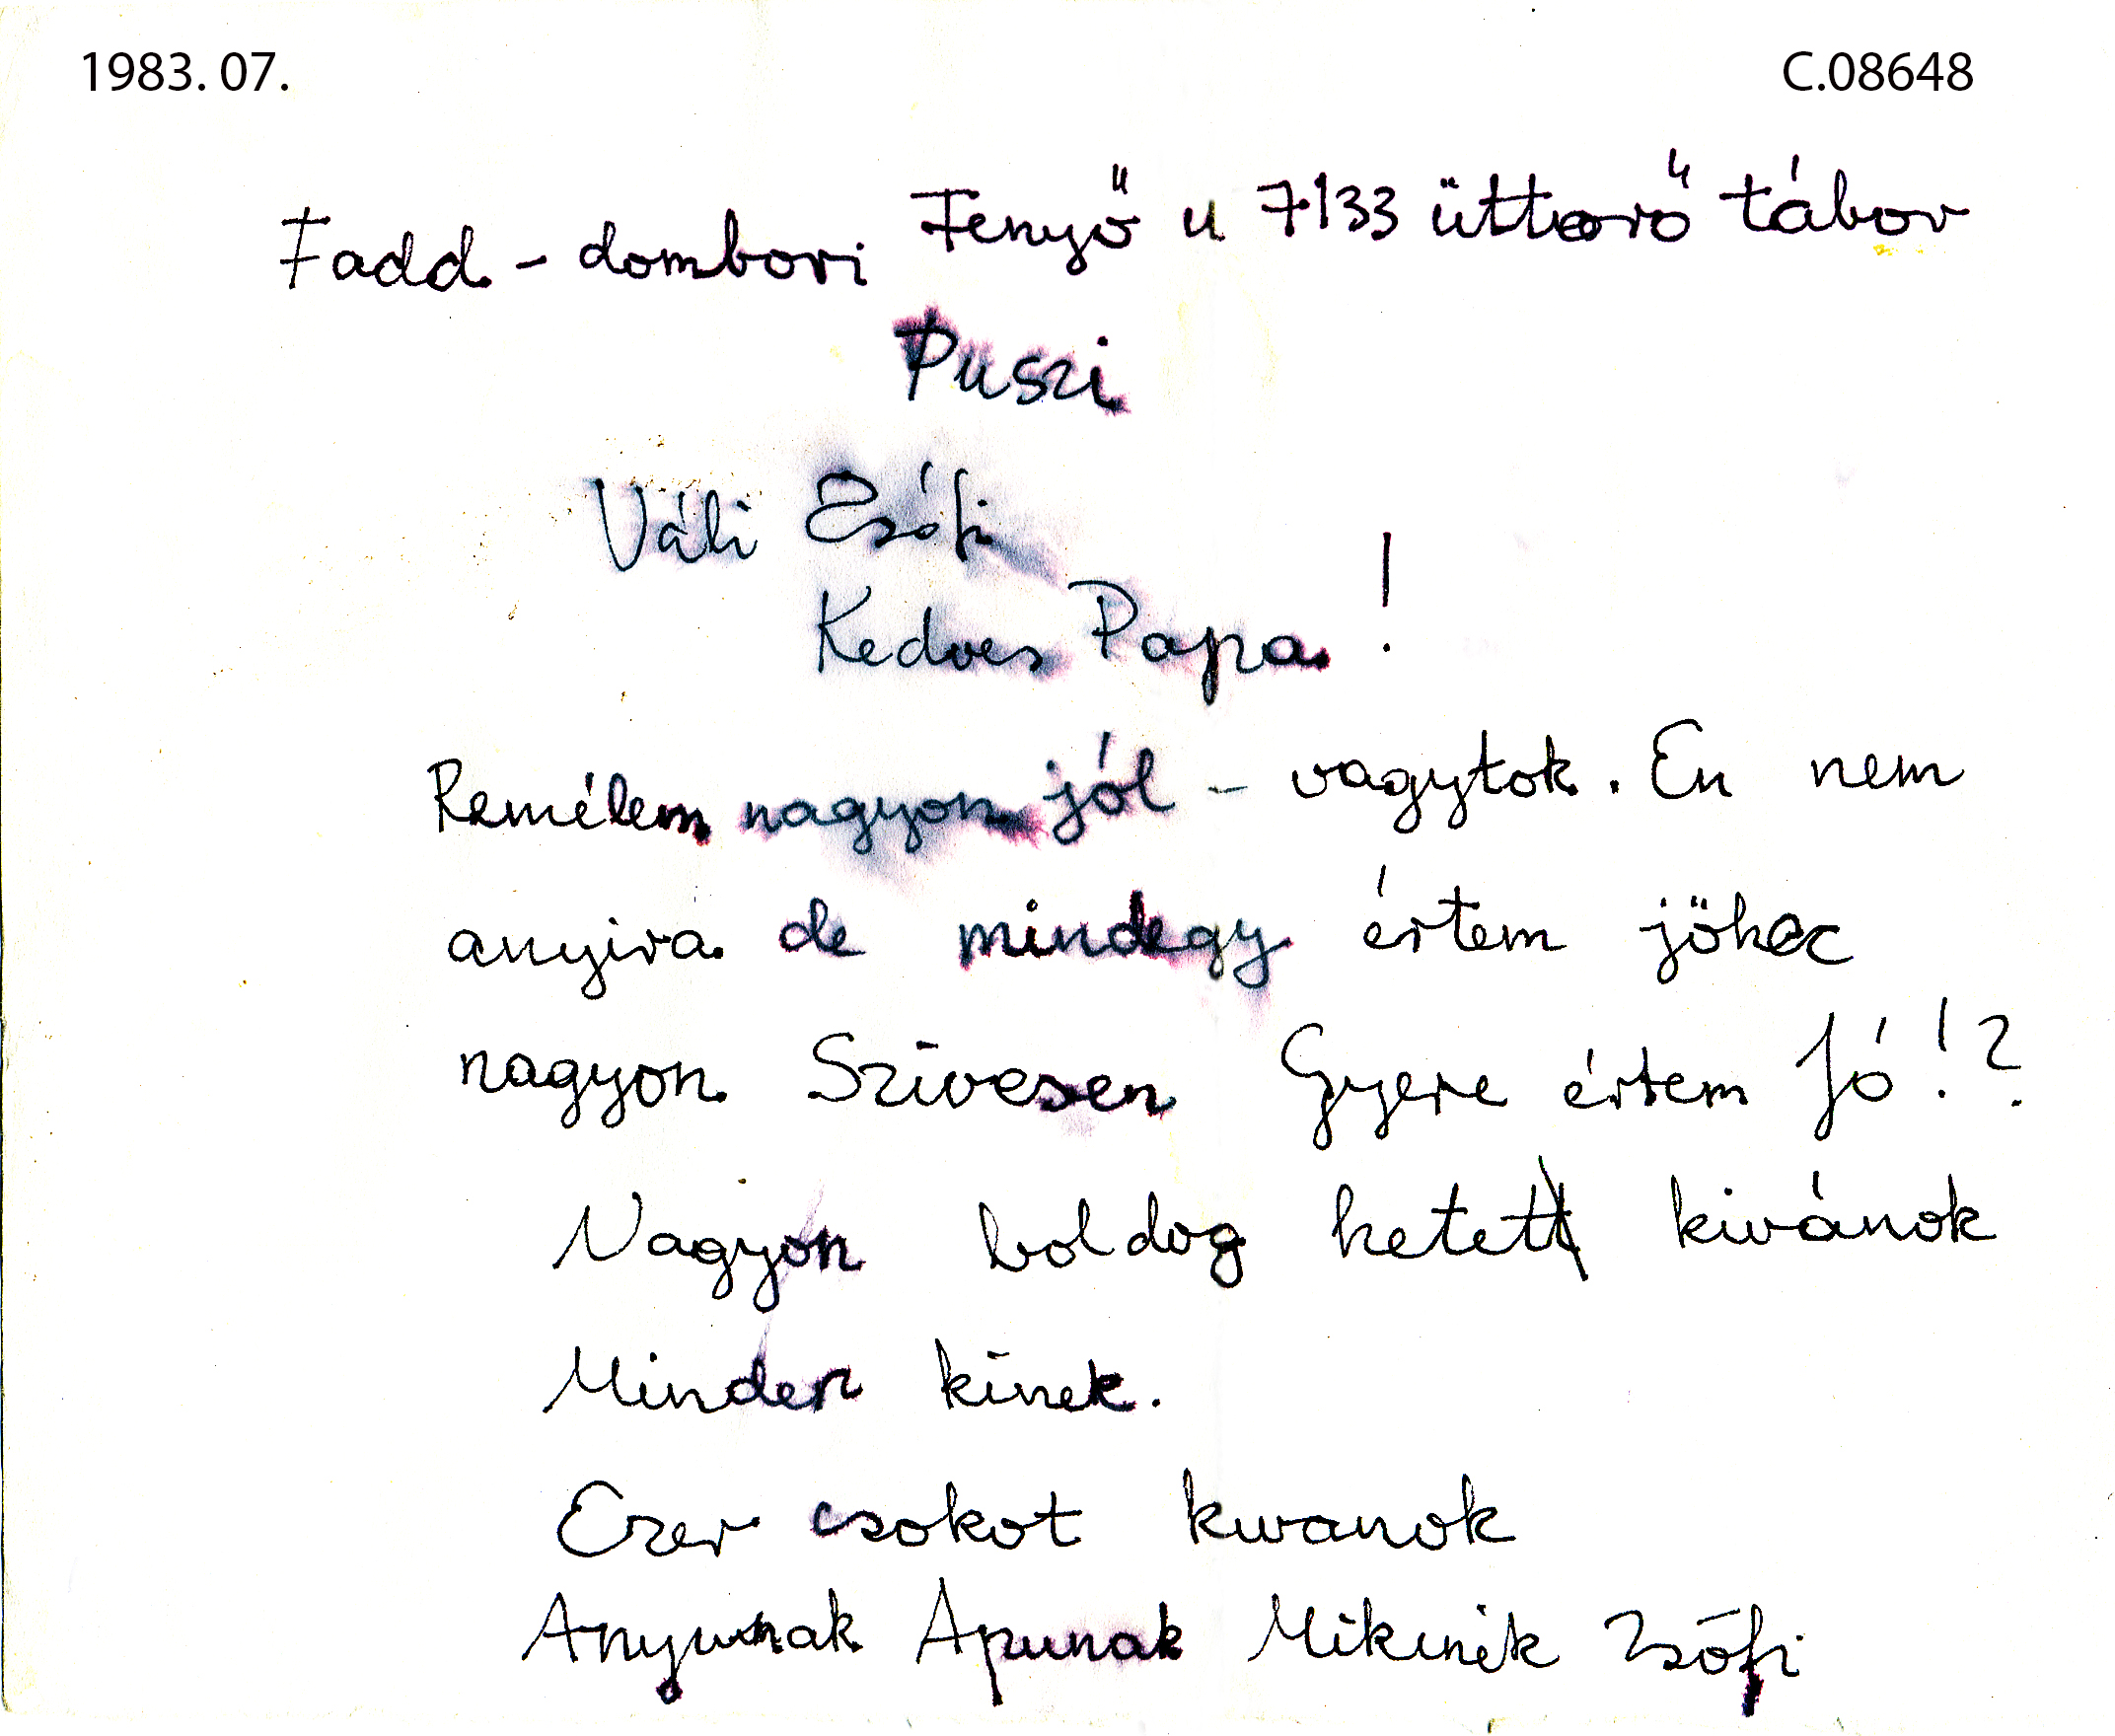 1983. 07.
C.08648
Fadd - dombori Fenyő u 7133 úttörő tábor
Puszi
Váli Zsófi
Kedves Papa!
Remélem nagyon jól - vagytok. En nem
anyira de mindegy értem jöhec
nagyon Szívesen Gyere értem Jó!?
Nagyon boldog hetet kivánok
Minden kinek.
Ezer csokot kivanok
Anyunak Apunak Mikinek Zsófi